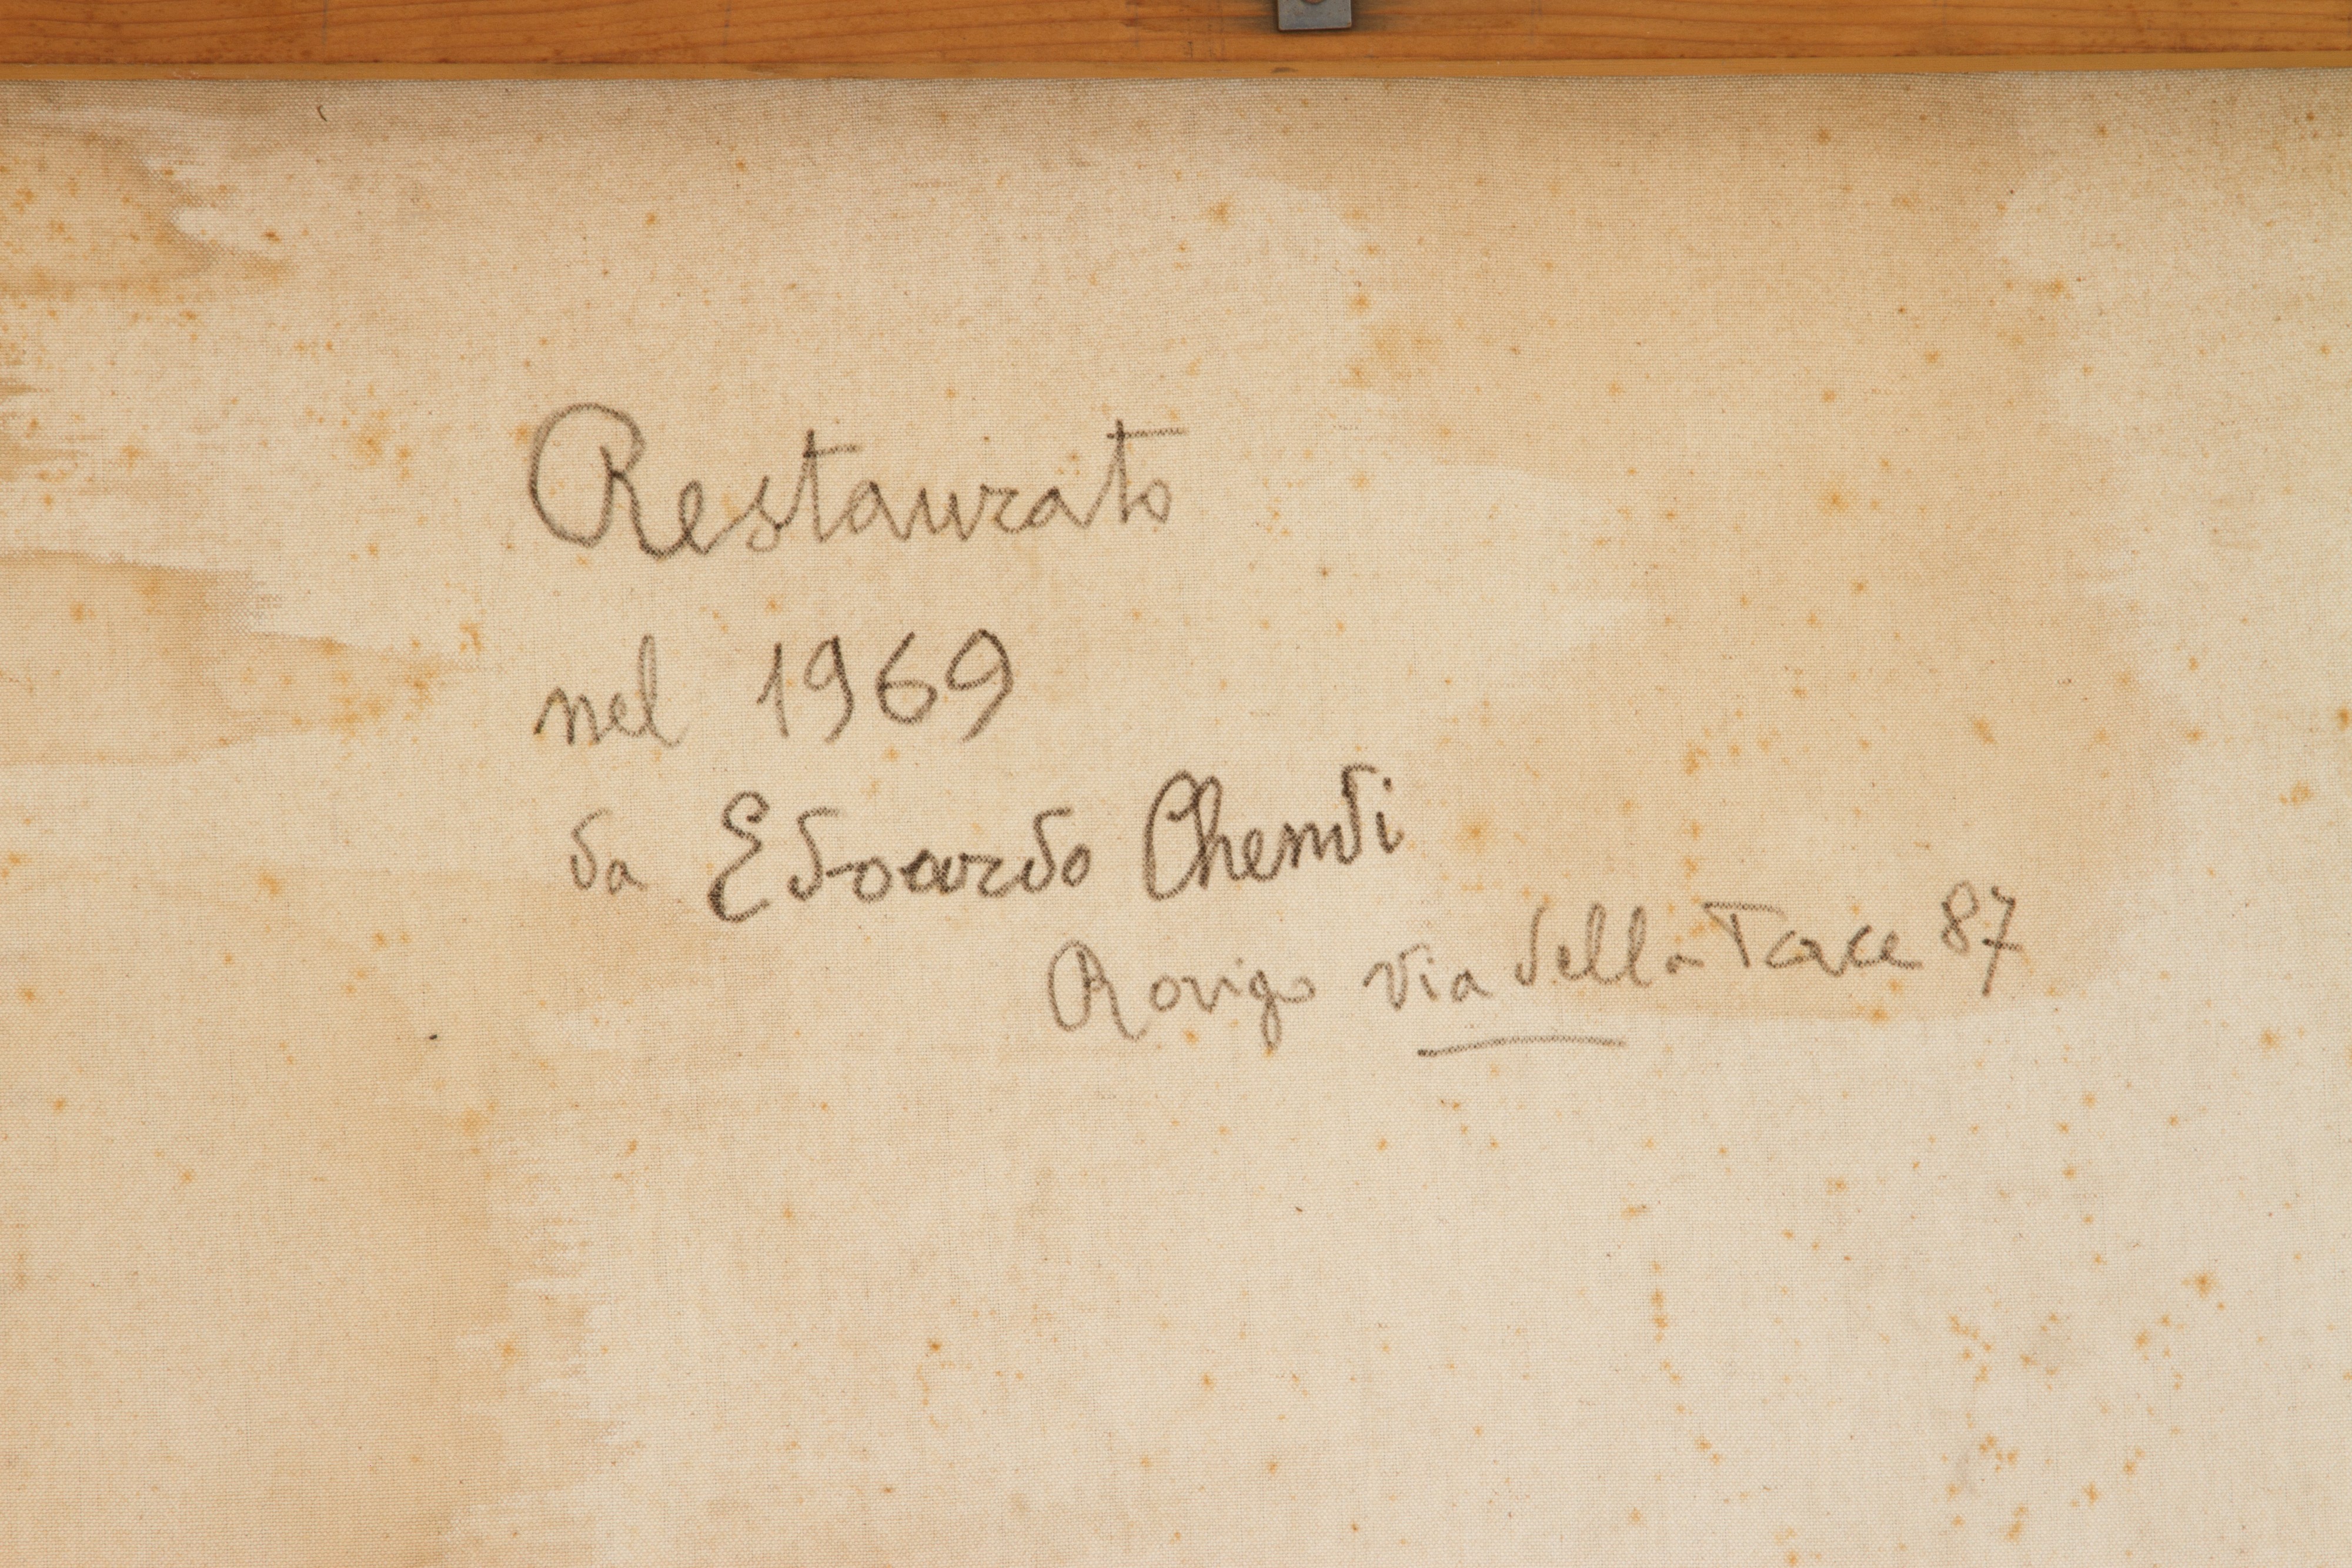 Restaurato
nel 1969
da Edoardo Chendi
Rovigo via della 87